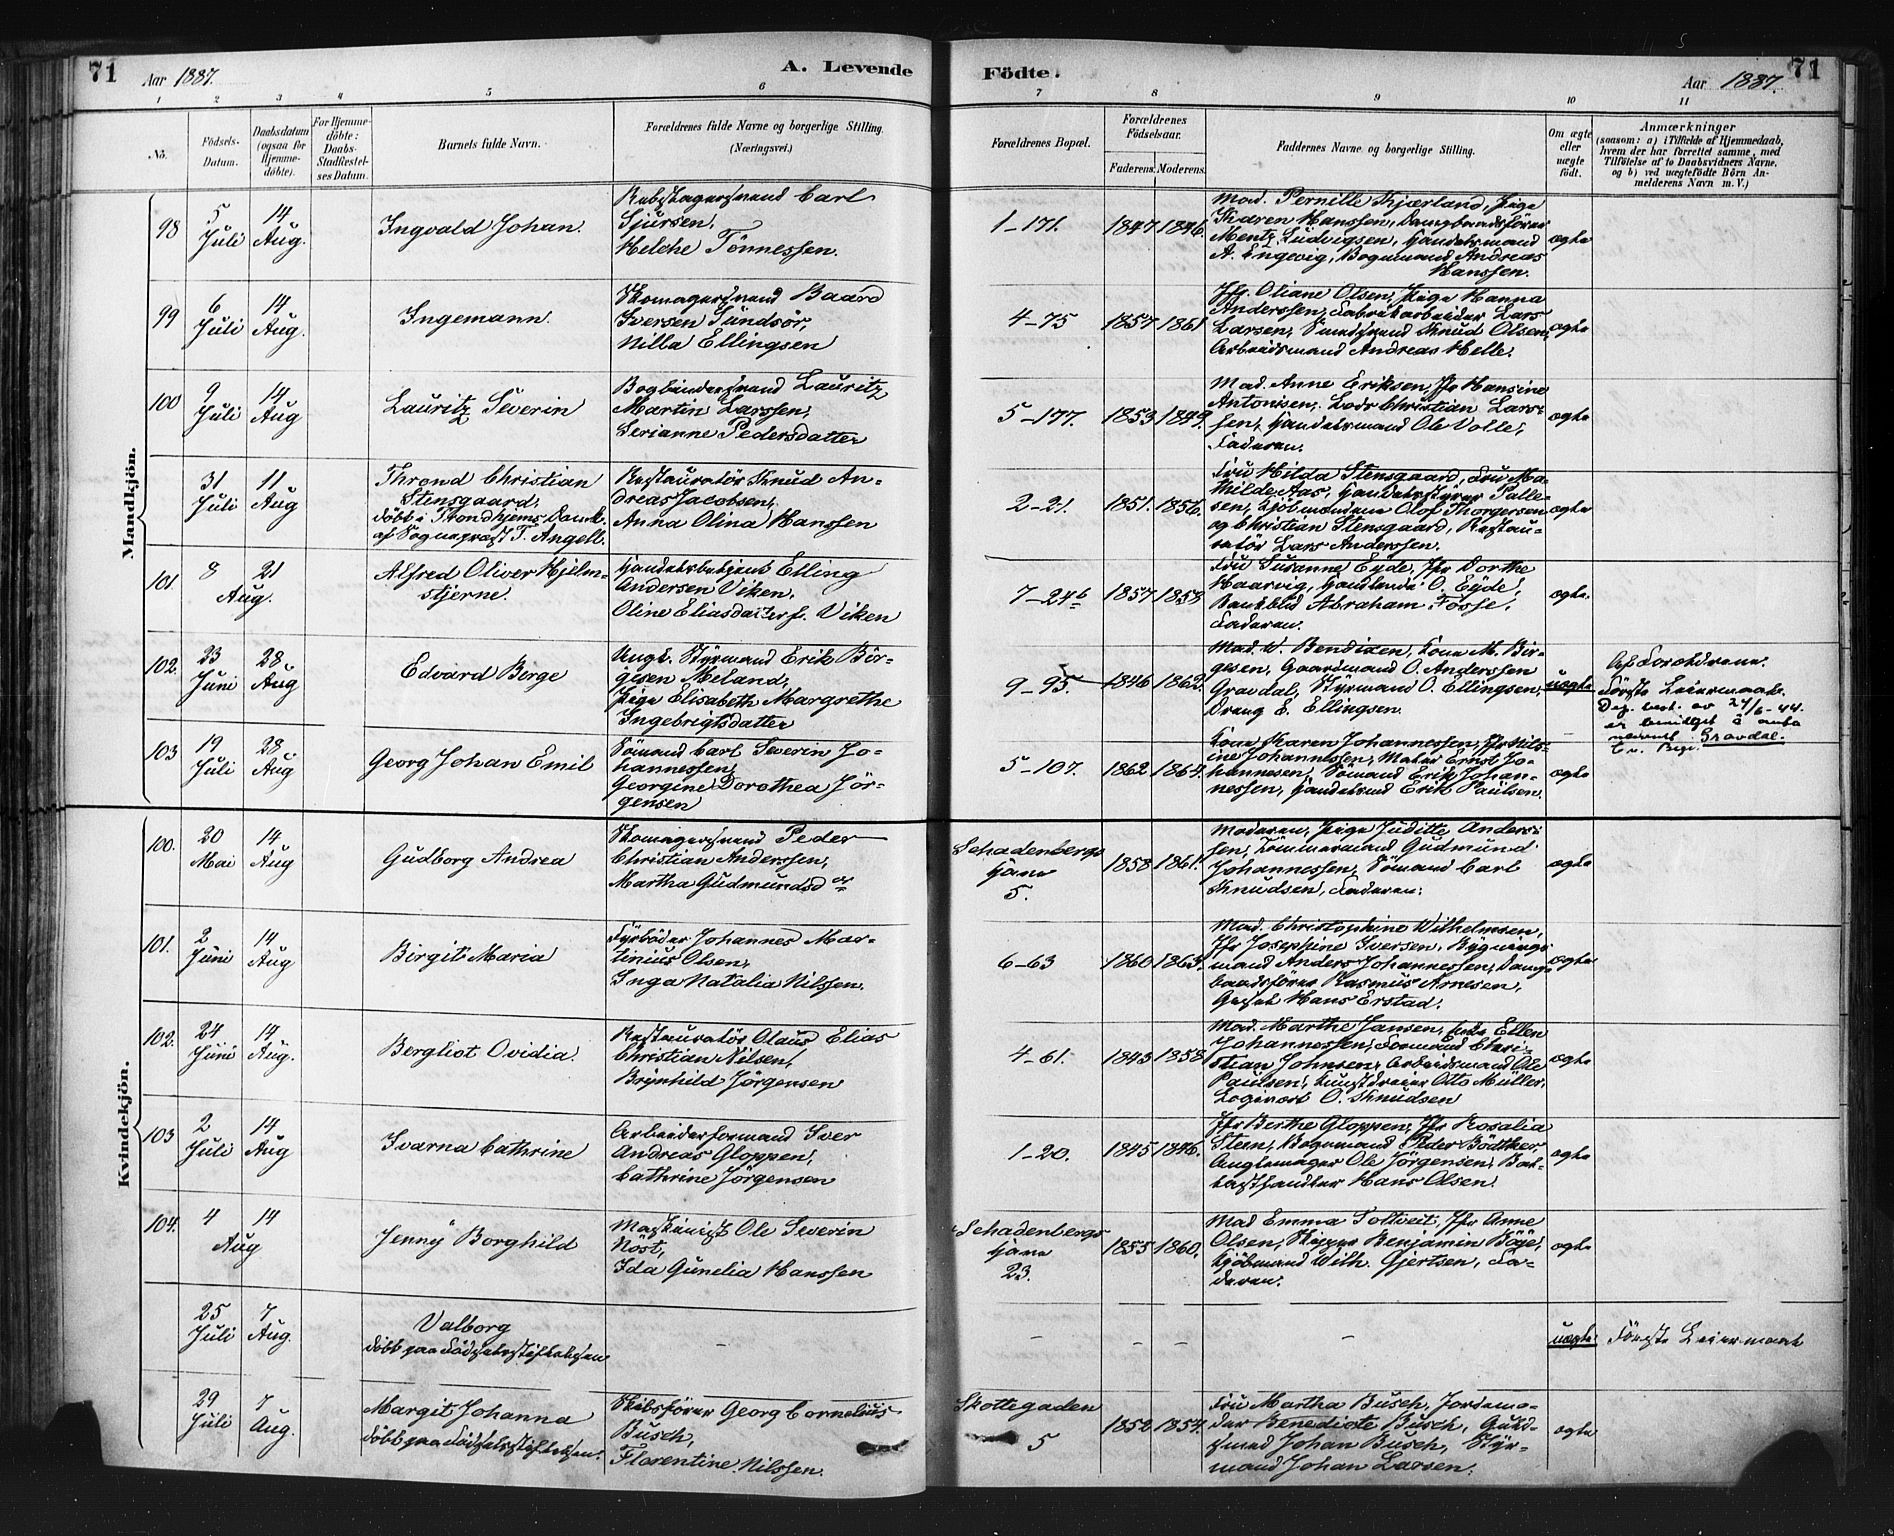 71 Aar 1887. A. Levende Födte. Aar 1887. 71
1 2 3 4 5 6 7 8 9 10 11
No. Födsels-Datum. Daabsdatum (ogsaa for Hjemmedöbte). For Hjemmedöbte: Daabs-Stadfæstelses Datum. Barnets fulde Navn. Forældrenes fulde Navne og borgerlige Stilling. (Næringsvei.) Forældrenes Bopæl. Forældrenes Födselsaar. Faderens. Moderens. Faddernes Navne og borgerlige Stilling. Om ægte eller uægte födt. Anmærkninger (saasom: a) i Tilfælde af Hjemmedaab, hvem der har forrettet samme, med Tilföielse af to Daabsvidners Navne, og b) ved uægtefödte Börn Anmelderens Navn m. V.)
Mandkjön.
98 5 Juli 14 Aug. Ingvald Johan.
Carl
Sjursen,
Helche Tönnessen.
1-171. 1847 1846.
Mad. Pernille Kjærland, Pige
Karen Hanssen, Dampbaadsförer
Mentz Ludvigsen, Handelsmand
A. Engevig, Bogmand Andreas
Hanssen.
ægte
99 6 Juli 14 Aug. Ingemann.
Skomagersvend Baard
Iversen Sündsör,
Nilla Ellingsen
4-75 1857 1861
Jfr. Oliane Olsen, Pige Hanna
Anderssen, Fabrikarbeider Lars
Larsen, Smedsvend Knud Olsen,
Arbeidsmand Andreas Helle.
ægte
100 9 Juli 14 Aug Lauritz Severin
Bogbindersvend Lauritz
Martin Larssen,
Serianne Pedersdatter
5-177. 1853 1849.
Mad. Anne Eriksen, Jfr Hansine
Antonisen, Lods Christian Lars-
sen, Handelsmand Ole Volle,
Faderen.
ægte
31 Juli 11 Aug
Thrond Christian
Stensgaard,
döbt i Trondhjems Domk.
af Sognepræst T. Angell.
Restauratör Knud An-
dreas Jacobsen,
Anna Olina Hanssen
2-21. 1851. 1856.
Fru Hilda Stensgaard, Fru Ma-
thilde Aas, Handelsstyrer Palle-
sen, Kjöbmændene Olof Thorgersen
og Christian Stensgaard, Restau-
ratör Lars Anderssen.
ægte
101. 8 21 Aug.
Alfred Oliver Hjelm-
stjerne.
Handelsbetjent Elling
Andersen Viken,
Oline Eliasdatter f. Viken
7-24b 1857 1858
Fru Susanne Eyde, Jfr Dorthe
Haarvig, Handlende O. Eyde,
Bankbud Abraham Fosse,
Faderen.
ægte.
102. 23 Juni 28 Aug Edvard Berge
Ungk. Styrmand Erik Bör-
gesen Meland,
Pige Elisabeth Margrethe
Ingebrigtsdatter
9-95. 1846 1862.
Mad. W. Bendixen, Kone M. Bir-
gesen, Gaardmand O. Anderssen
Gravdal, Styrmand O. Ellingsen,
Dreng E. Ellingsen.
uægte
Af Forældrene.
Förste Leiermaal.
Dep. best. av 24/6-44
er bevilget å anta
navnet Gravdal.
103 19 Juli 28 Aug Georg Johan Emil
Sömand Carl Severin Jo-
hannessen,
Georgine Dorothea Jör-
gensen
5-107. 1862 1864.
Kone Karen Johannessen, Jfr Nils-
ine Johannessen, Maler Ernst Jo-
hannesen, Sömand Erik Johan-
nessen, Handelsmd Erik Paulsen.
ægte
Kvindekjön.
100. 20 Mai 14 Aug Gudborg Andrea
Skomagersvend Peder
Christian Anderssen,
Martha Gudmundsdatter
Schadenbergs
Hane
5.
1858 1861.
Moderen, Pige Juditte Anders-
sen, Tömmermand Gudmund
Johannessen, Sömand Carl
Knudsen, Faderen.
ægte
101. 2 Juni 14 Aug Birgit Maria
Fyrböder Johannes Mar-
tinius Olsen,
Inga Natalia Nilssen.
6-63 1860 1863.
Mad. Christophine Wilhelmsen,
Jfr Josephine Iversen, Bygnings-
mand Anders Johannessen, Damp-
baadsförer Rasmus Arnesen,
Hans Erstad.
ægte
102. 24 Juni 14 Aug. Bergliot Ovidia.
Restauratör Olaus Elias
Christian Nilsen,
Brynhild Jörgensen
4-61. 1843 1858
Mad. Marthe Jansen, Enke Ellen
Johannessen, Formand Chri-
stian Johnsen, Arbeidsmand Ole
Paulsen, Kunstdreier Otto Müller,
Logivært O. Knudsen
ægte
103 2 Juli 14 Aug Ivarna Cathrine
Arbeiderformand Iver
Andreas Gloppen,
Cathrine Jörgensen
1-20. 1845 1846.
Jfr Berthe Gloppen, Jfr Rosalia
Steen, Bogmand Peder Bödtker,
Ole Jörgensen, Bal-
lasthandler Hans Olsen.
ægte
104. 4 14 Aug Jenny Borghild
Maskinist Ole Severin
Nöst,
Ida Gunelia Hanssen
Schadenbergs
Hane
23.
1855 1860.
Mad Emma Soltveit, Jfr Anne
Olsen, Skipper Benjamin Böje,
Kjöbmand Wilh. Gjertsen, Fa-
deren.
ægte
25 Juli 7 Aug.
Valborg
döbt paa Födselsstiftelsen
- - - - -
uægte. Förste Leiermaal
29 Juli 7 Aug.
Margit Johanna
döbt paa Födselsstiftelsen.
Skibsförer Georg Cornelius
Busch,
Florentine Nilssen.
Skottegaden
5
1852 1854.
Fru Martha Busch, Jordemo-
der Benedicte Busch, Guld-
smed Johan Busch, Styr-
mand Johan Larsen.
ægte